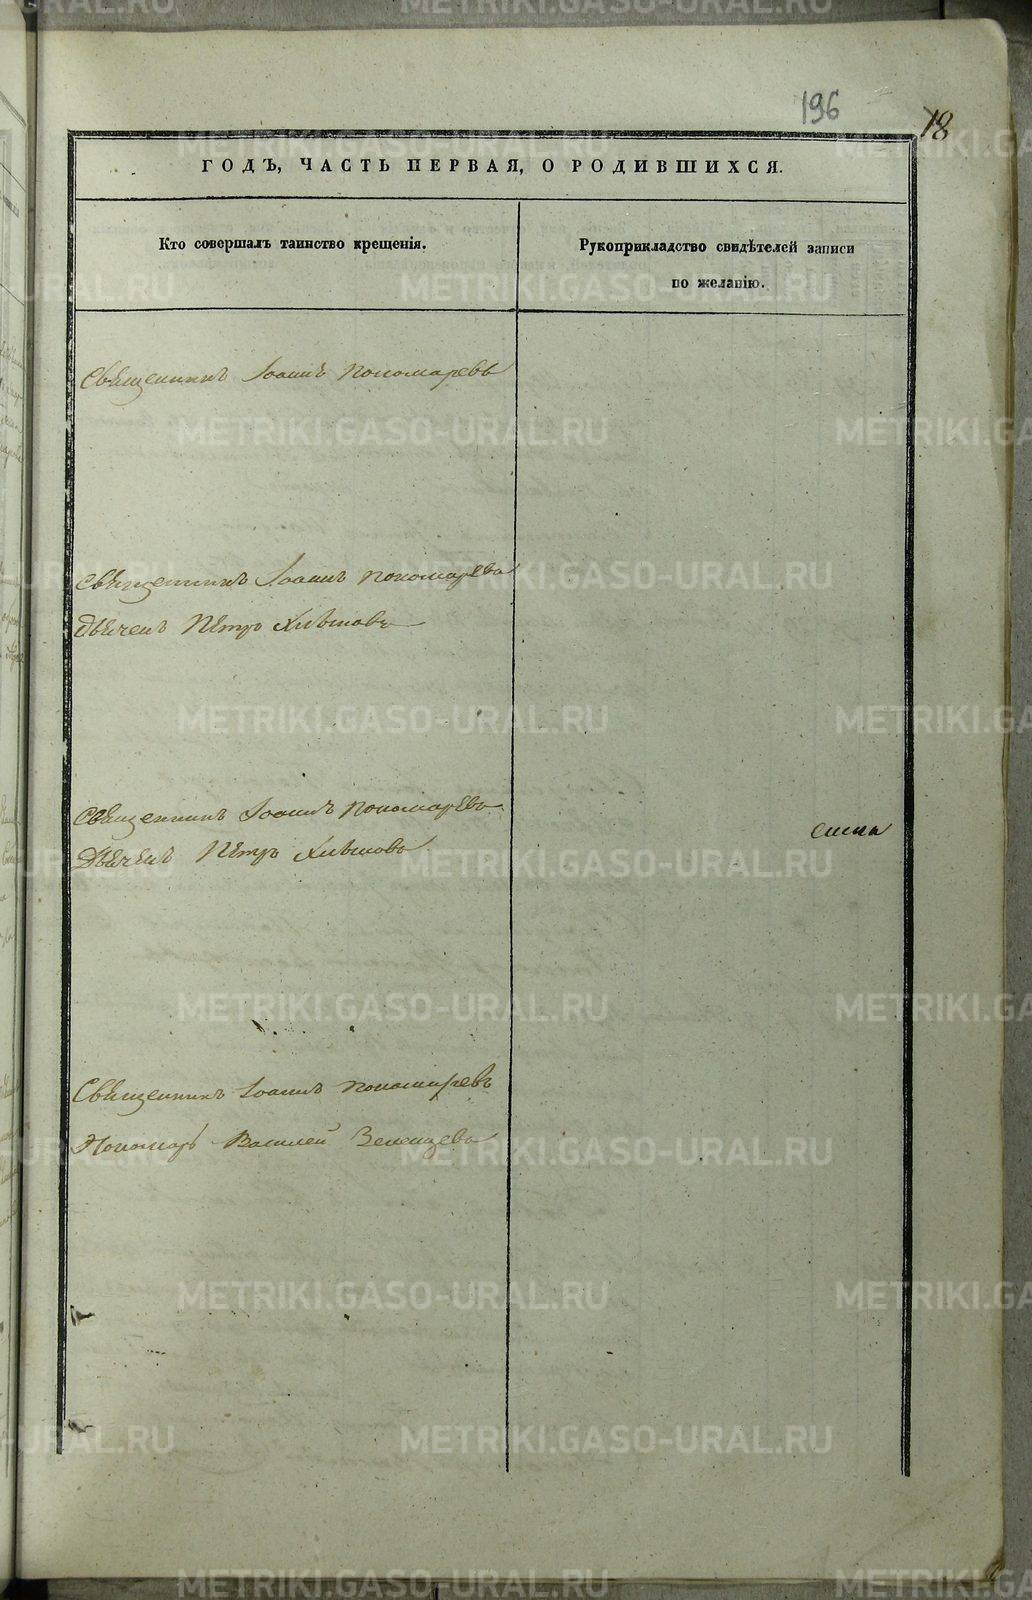 196
18
ГОДЪ, ЧАСТЬ ПЕРВАЯ, О РОДИВШИХСЯ.
Кто совершалъ таинство крещенія.
Рукоприкладство свидѣтелей записи
по желанію.
Священникъ Іоаннъ Пономаревъ
Священникъ Іоаннъ Пономаревъ
Дьячекъ Петръ Хлѣбовъ
Священникъ Іоаннъ Пономаревъ
Дьячекъ Петръ
Священникъ Іоаннъ Пономаревъ
Пономарь Василей Зеленцевъ
METRIKI.GASO-URAL.RU